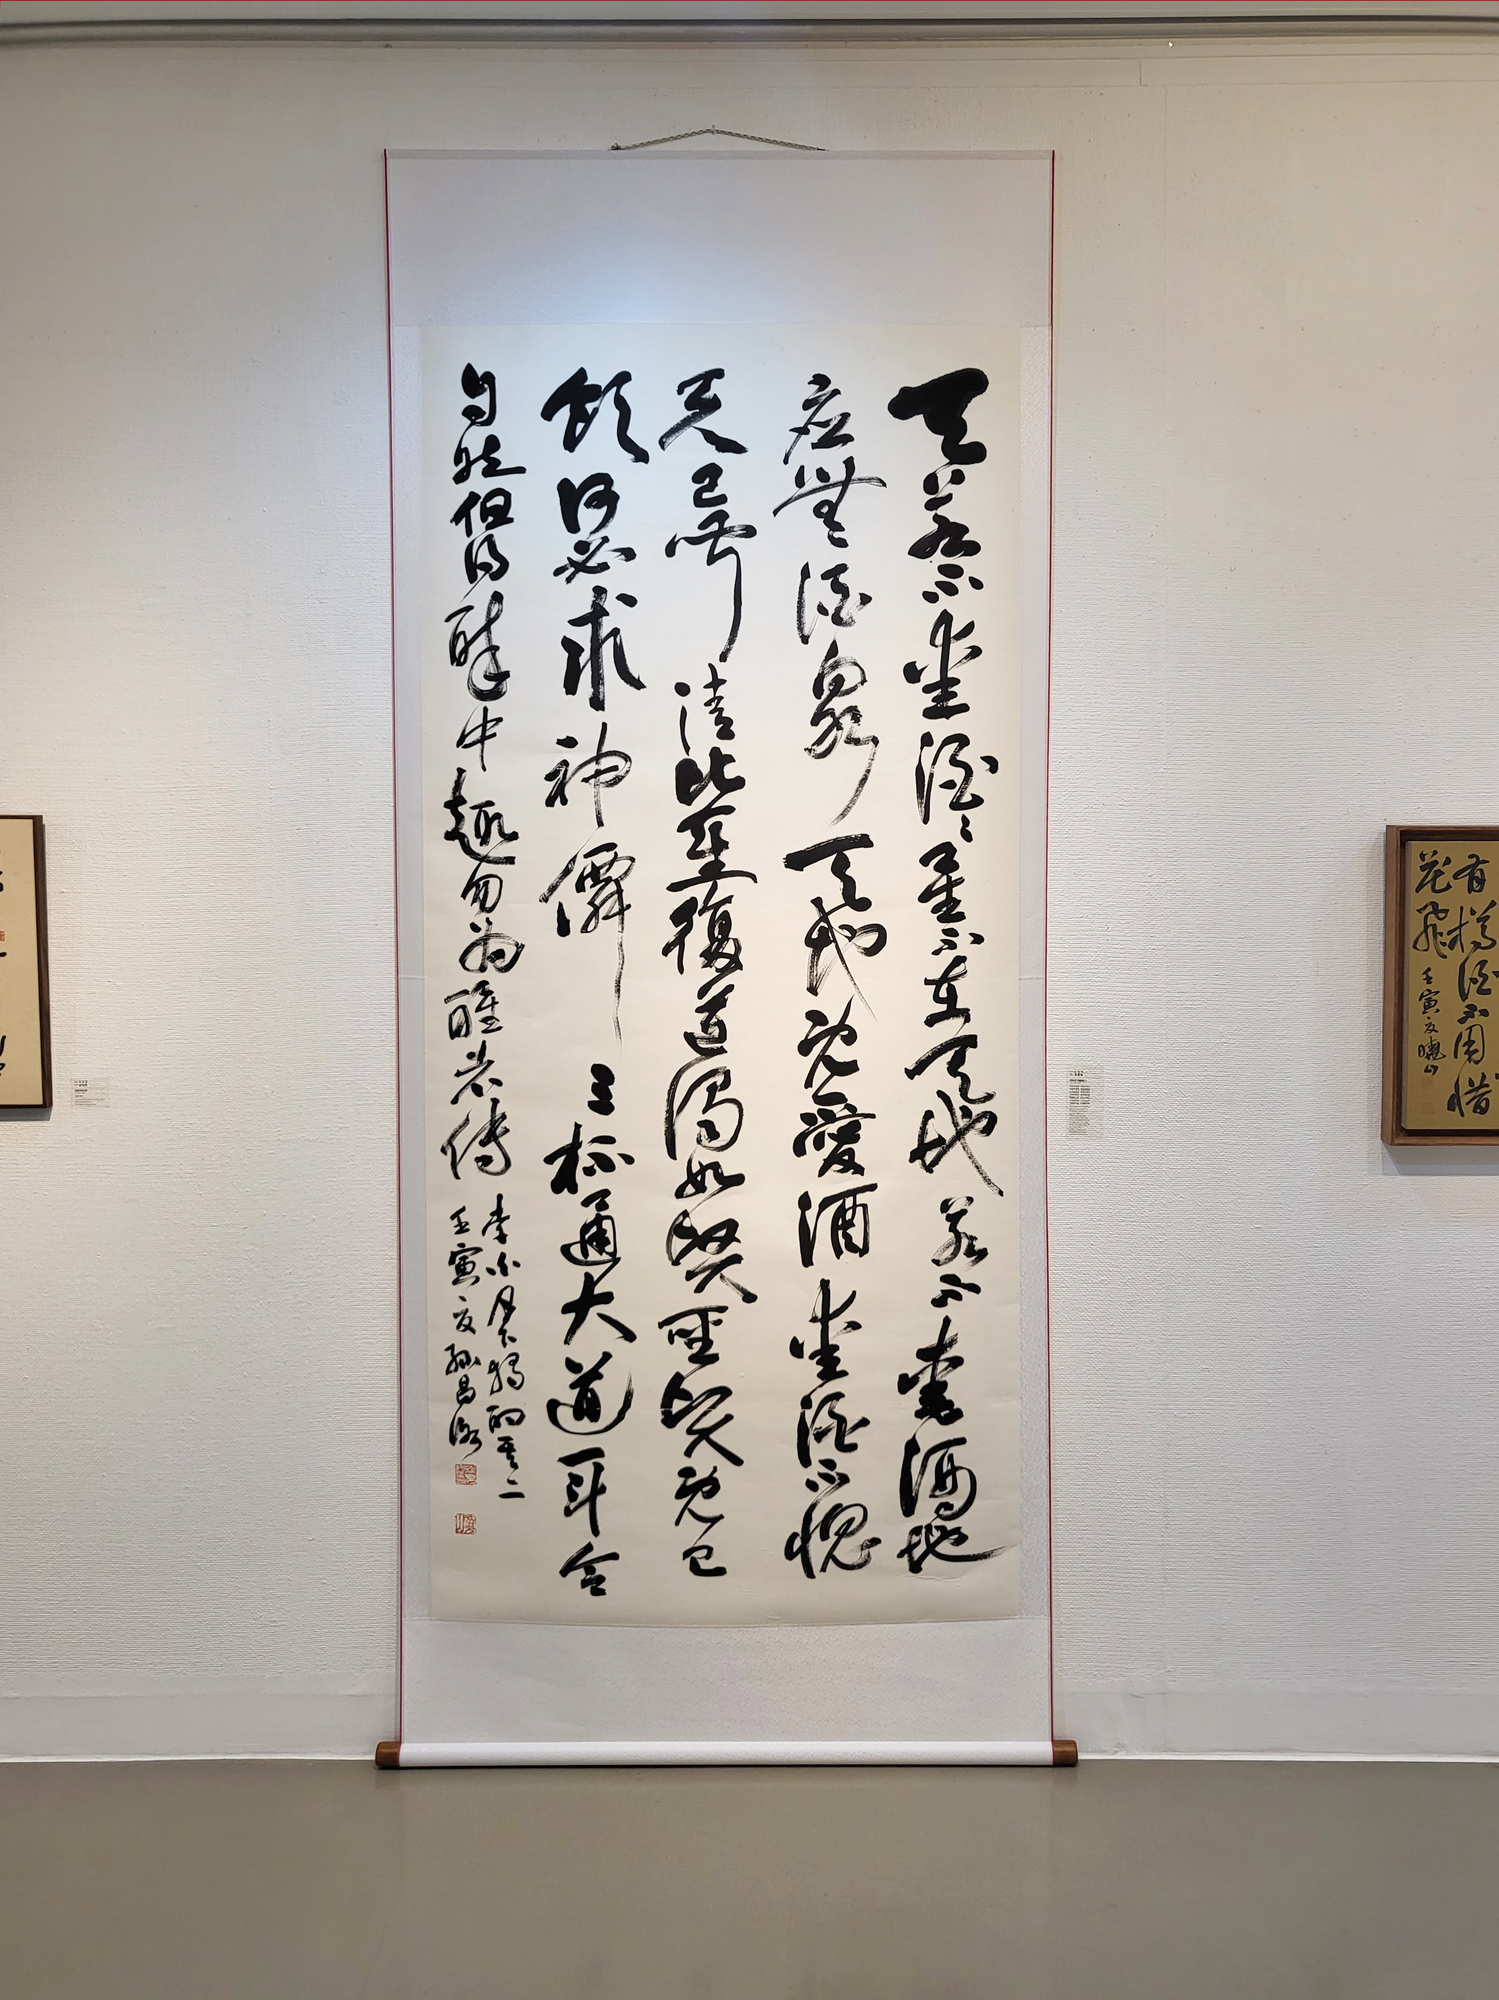 天若不愛酒〻星不在天地若不愛酒地
應無酒泉天地既愛酒愛酒不愧
天已聞清比聖復道濁如賢聖賢既已
飲何必求神僊三杯通大道一斗合
自然但得醉中趣勿為醒者傳
李白月下獨酌其二
壬寅夏孫昌
有樽酒不用惜
花飛
壬寅夏曉山